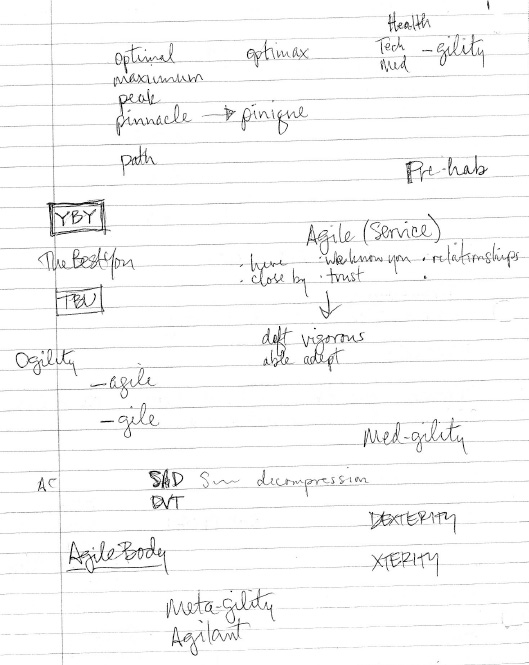 Health
optimal optimax Tech -gility
maximum Med
peak
pinnacle → pinique
path
Pre-hab
YBY
Agile (Service)
The Best You · here · we know you · relationships
· close by · trust ·
TBU
deft vigorous
able adept
Ogility
-agile
-gile
Med-gility
AC SAD decompression
DVT
DEXTERITY
Agile Body
XTERITY
Meta-gility
Agilant